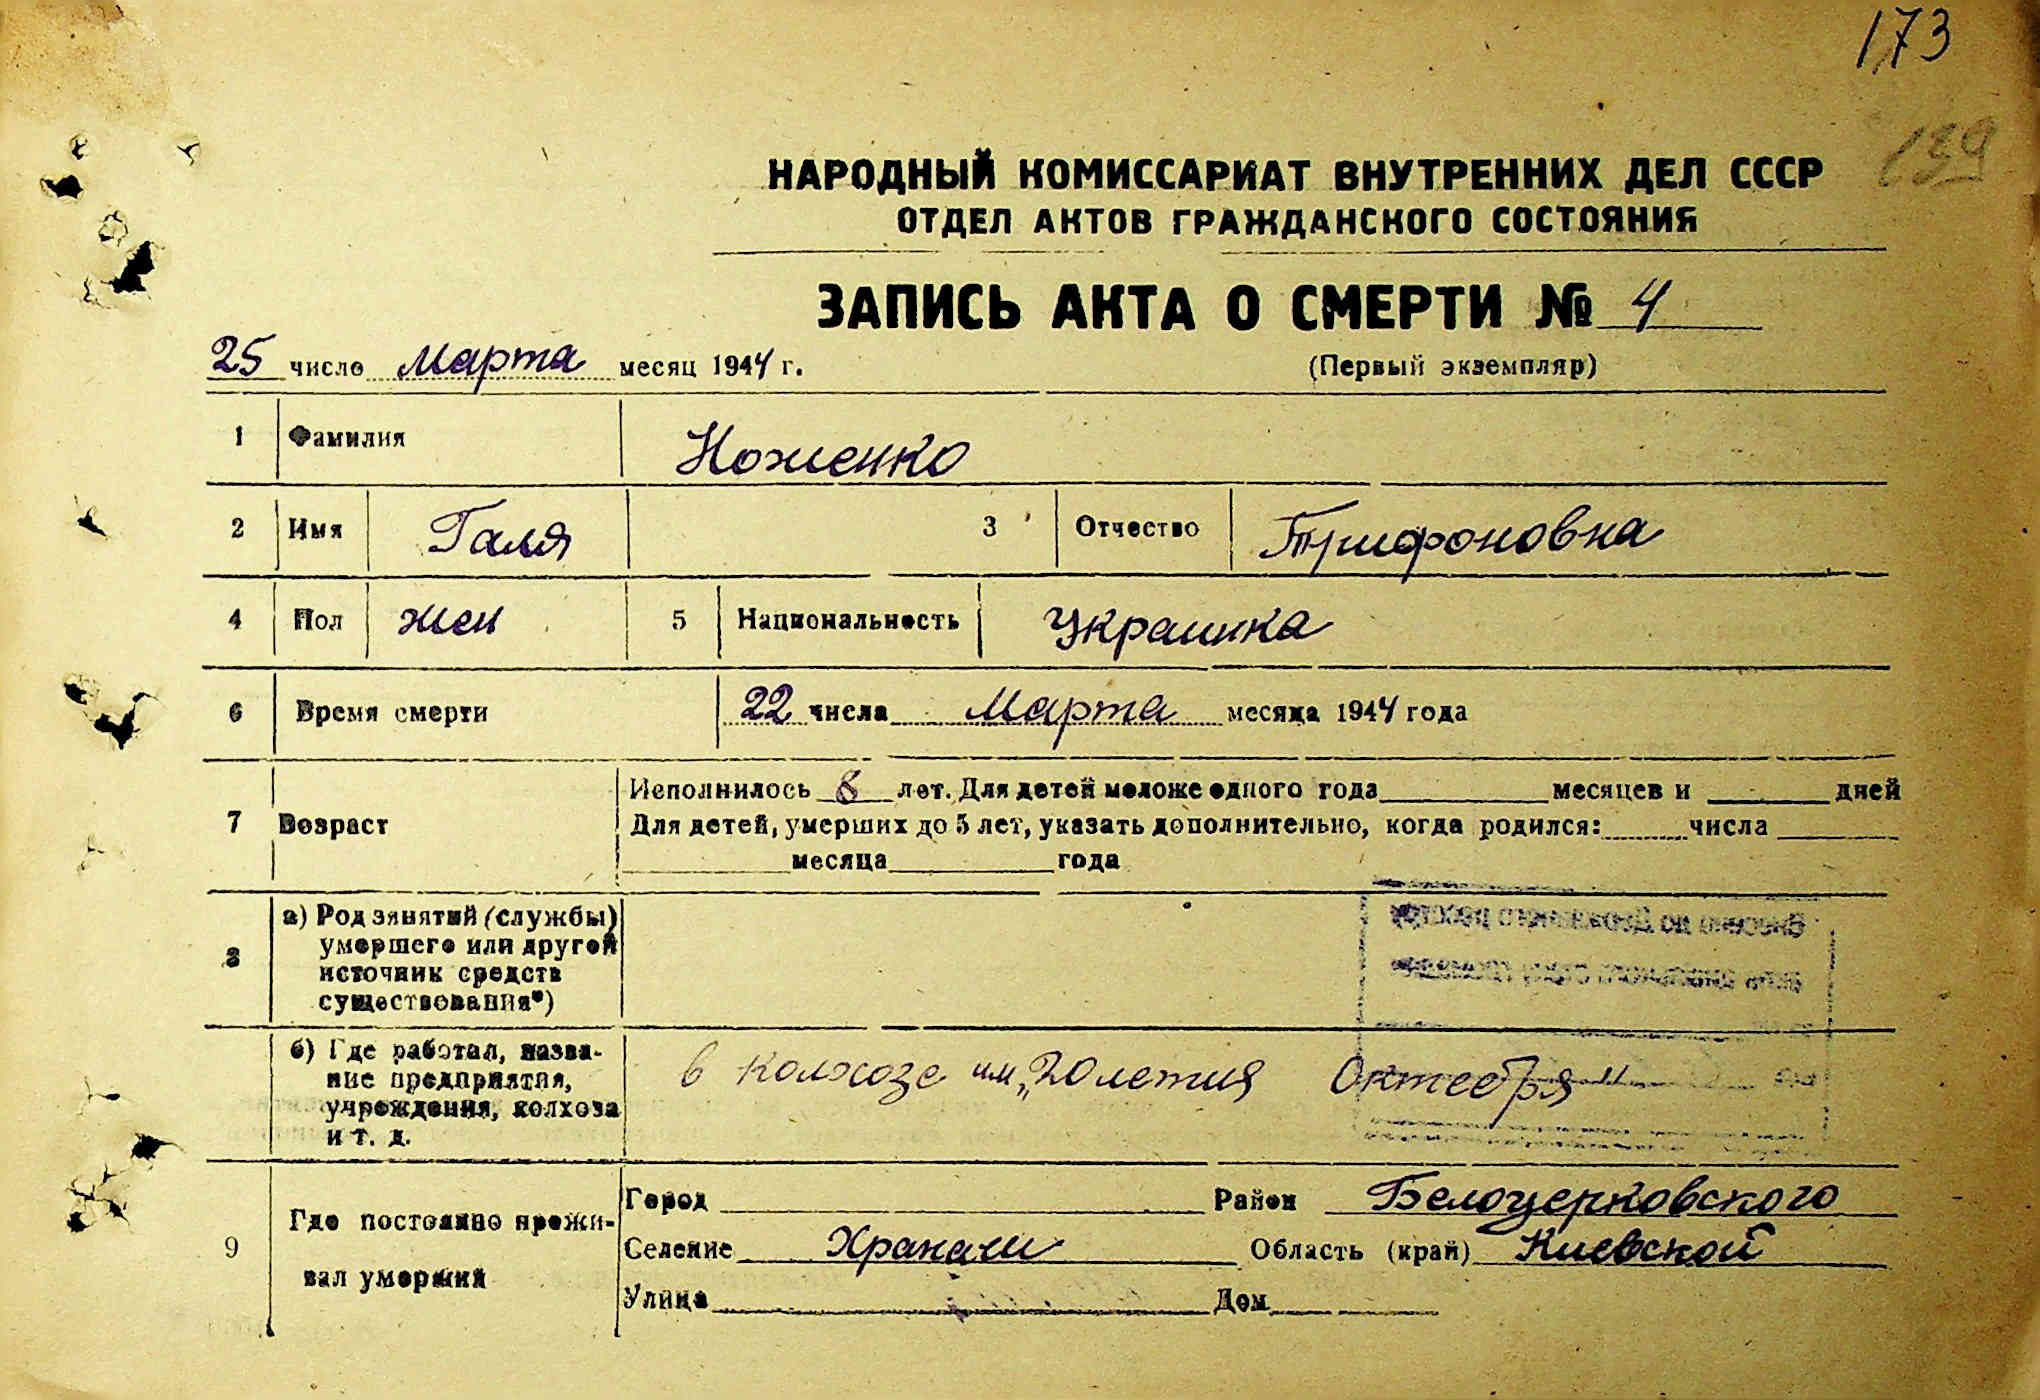 173
139
НАРОДНЫЙ КОМИССАРИАТ ВНУТРЕННИХ ДЕЛ СССР
ОТДЕЛ АКТОВ ГРАЖДАНСКОГО СОСТОЯНИЯ
ЗАПИСЬ АКТА О СМЕРТИ № 4
25 число Марта месяц 1944 г.
(Первый экземпляр)
1 Фамилия Ноженко
2 Имя Галя 3 Отчество Трифоновна
4 Пол жен 5 Национальность Украинка
6 Время смерти 22 числа Марта месяца 1944 года
7 Возраст
Исполнилось 8 лет. Для детей моложе одного года месяцев и дней
Для детей, умерших до 5 лет, указать дополнительно, когда родился: числа
месяца года
8 а) Род занятий (службы)
умершего или другой
источник средств
существования*)
б) Где работал, назва-
ние предприятия,
учреждения, колхоза
и т. д.
в колхозе им „20летия Октебря
9 Где постоянно прожи-
вал умерший
Город Район Белоцерковского
Селение Храпачи Область (край) Киевской
Улица Дом